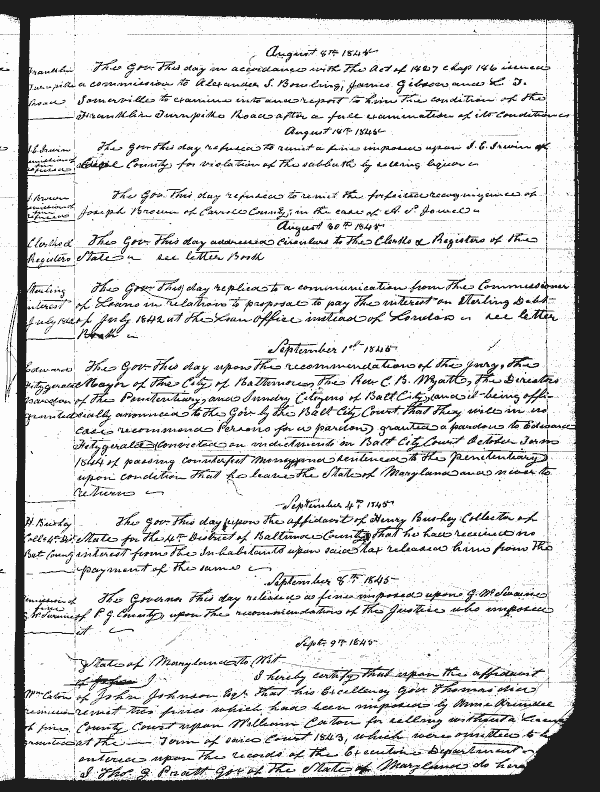 August 8th 1845
Franklin Turnpike Road
The Gov. This day in accordance with the Act of 1827 chap 186 issued
a commission to Alexander S. Bowling, James Gibson and L. T.
Somerville to examine into and report to him the condition of the
Franklin Turnpike Road after a full examination of its condition
August 18th 1845
remission of fine refused
The Gov this day refused to remit a fine imposed upon J. C. Irwin of
County for violation of the sabbath by selling liquor
J Brown remission of fine refused
The Gov. This day refused to remit the forfeited recognizance of
Joseph Brown of Carroll County, in the case of A. S.
August 30th 1845
Clerks & Registers
The Gov. This day addressed circulars to the Clerks & Registers of the
State see letter Book
Sterling interest July 1842
The Gov. This day replied to a communication from the Commissioner
of Loans in relation to proposal to pay the interest on Sterling Debt
of July 1842 at the Loan Office instead of London see letter
Book
September 1st 1845
Edward Fitzgerald pardon granted
The Gov. This day upon the recommendation of the Jury, the
Mayor of the City of Baltimore, the Rev C. B. Wyatt, the Directors
of the Penitentiary, and Sundry Citizens of Balt City, and it being offi-
cially announced to the Gov by the Balt City Court that they will in no
case recommend Persons for a pardon, granted a pardon to Edward
Fitzgerald convicted on indictments in Balt City Court October Term
1844 of passing counterfeit Money and sentenced to the penitentiary
upon condition that he leave the State of Maryland and never to
return
September 4th 1845
H Busby Coll. 4th Dist. Balt County
The Gov. this day upon the affidavit of Henry Busby Collector of
State for the 4th District of Baltimore County, that he had received no
interest from the Inhabitants upon said has released him from the
payment of the same
September 8th 1845
remission of fine
The Governor this day released a fine imposed upon G. Mc
of P G County, upon the recommendation of the Justice who imposed
it
Sept 9th 1845
State of Maryland to Wit
Wm Caton remission of fine granted
I hereby certify that upon the affidavit
of John Johnson Esqr that his Excellency Gov Thomas did
remit two fines which had been imposed by Anne Arundel
County Court upon William Caton for selling without a License
at the Term of said Court 1843, which were omitted to be
entered upon the records of the Executive Department
I Tho. G Pratt Gov of the State of Maryland do